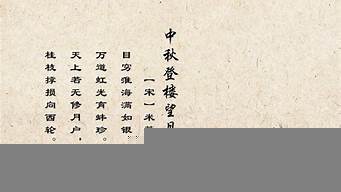 中秋登楼望月
【宋】米
目穷淮海满如银
万道虹光育蚌珍。
天上若无修月户，
桂枝撑损向西轮。